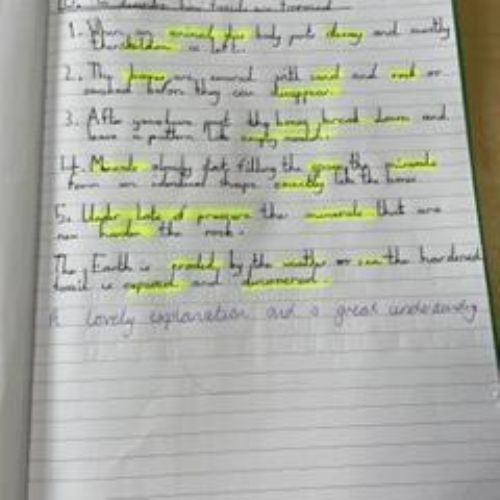 LO: To describe how fossils are formed
1. When an animal dies body part decay and mostly
the skeleton is left.
2. The bones are covered with sand and rock or
before they can disappear.
3. After years have past the bones break down and
leave a pattern like empty mould.
4. Minerals slowly start filling the space the minerals
form an identical shape exactly like the bones.
5. Under lots of pressure the minerals that are
now harden the rock.
The Earth is eroded by the weather or sea the hardened
fossil is exposed and discovered.
A lovely explanation and a great understanding